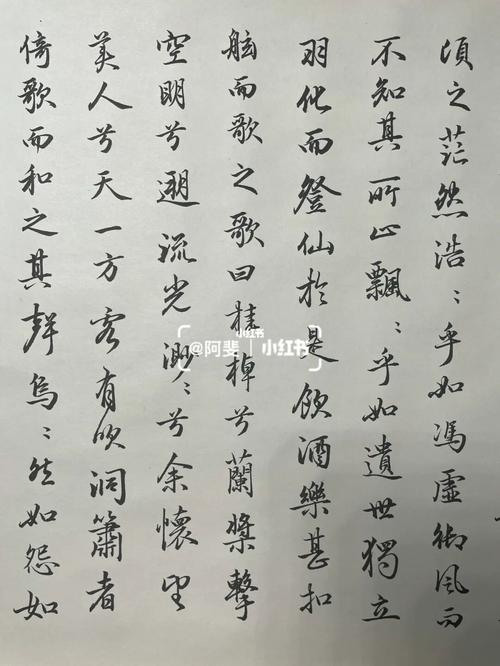 頃之茫然浩〻乎如馮虛御風而
不知其所止飄〻乎如遺世獨立
羽化而登仙於是飲酒樂甚扣
舷而歌之歌曰桂棹兮蘭槳擊
空明兮遡流光渺〻兮余懷望
美人兮天一方客有吹洞簫者
倚歌而和之其聲烏〻然如怨如
小红书
@阿斐 | 小红书